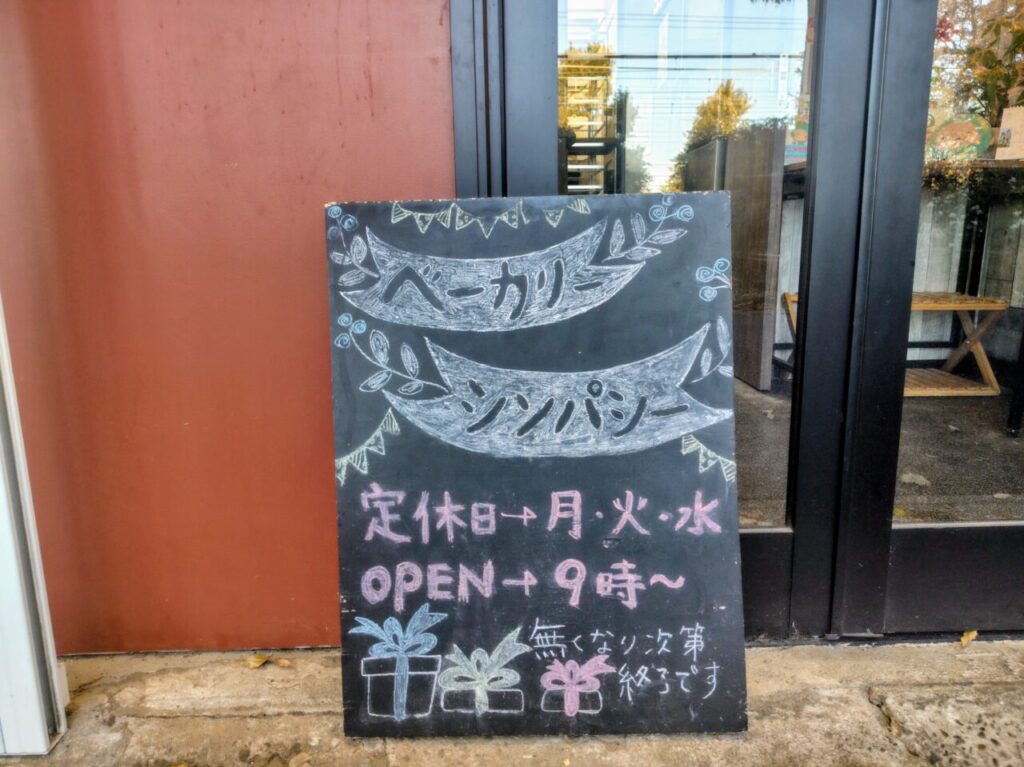 ベーカリー
シンパシー
定休日→月・火・水
OPEN→9時～
無くなり次第
終了です